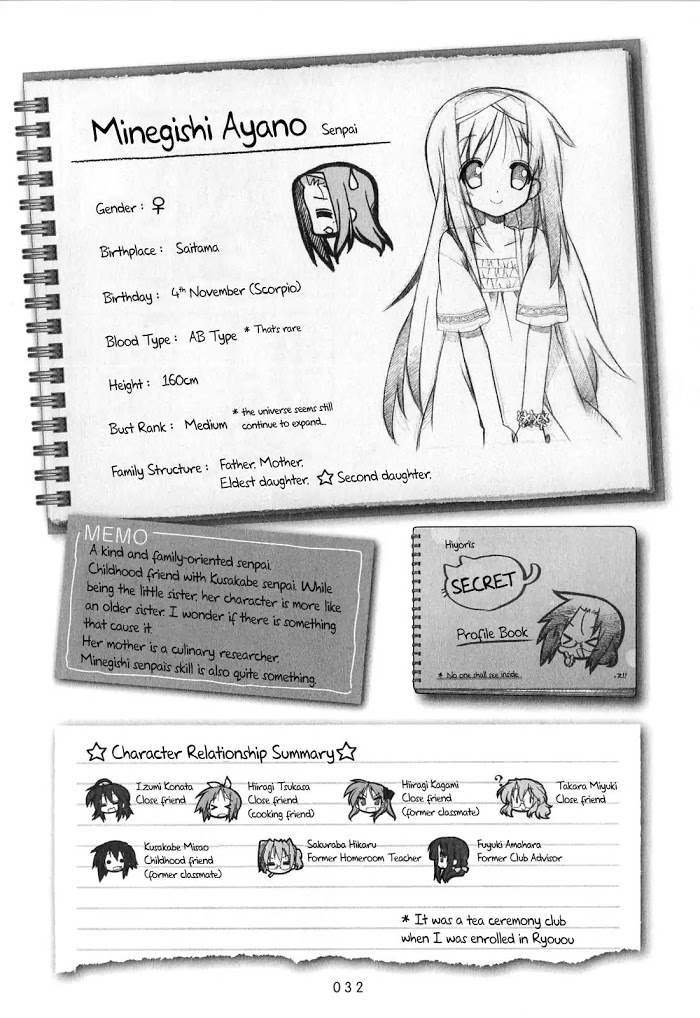 Minegishi Ayano Senpai
Gender : ♀
Birthplace : Saitama
Birthday : 4th November (Scorpio)
Blood Type : AB Type * That's rare
Height : 160cm
Bust Rank : Medium * the universe seems still
continue to expand...
Family Structure : Father. Mother.
Eldest daughter. ☆ Second daughter.
MEMO
A kind and family-oriented senpai.
Childhood friend with Kusakabe senpai. While
being the little sister, her character is more like
an older sister. I wonder if there is something
that cause it.
Her mother is a culinary researcher.
Minegishi senpai's skill is also quite something.
Hiyori's
SECRET
Profile Book
* No one shall see inside.
☆ Character Relationship Summary☆
Izumi Konata
Close friend
Hiiragi Tsukasa
Close friend
(cooking friend)
Hiiragi Kagami
Close friend
(former classmate)
?
Takara Miyuki
Close friend
Kusakabe Misao
Childhood friend
(former classmate)
Sakuraba Hikaru
Former Homeroom Teacher
Fuyuki Amahara
Former Club Advisor
* It was a tea ceremony club
when I was enrolled in Ryouou
032